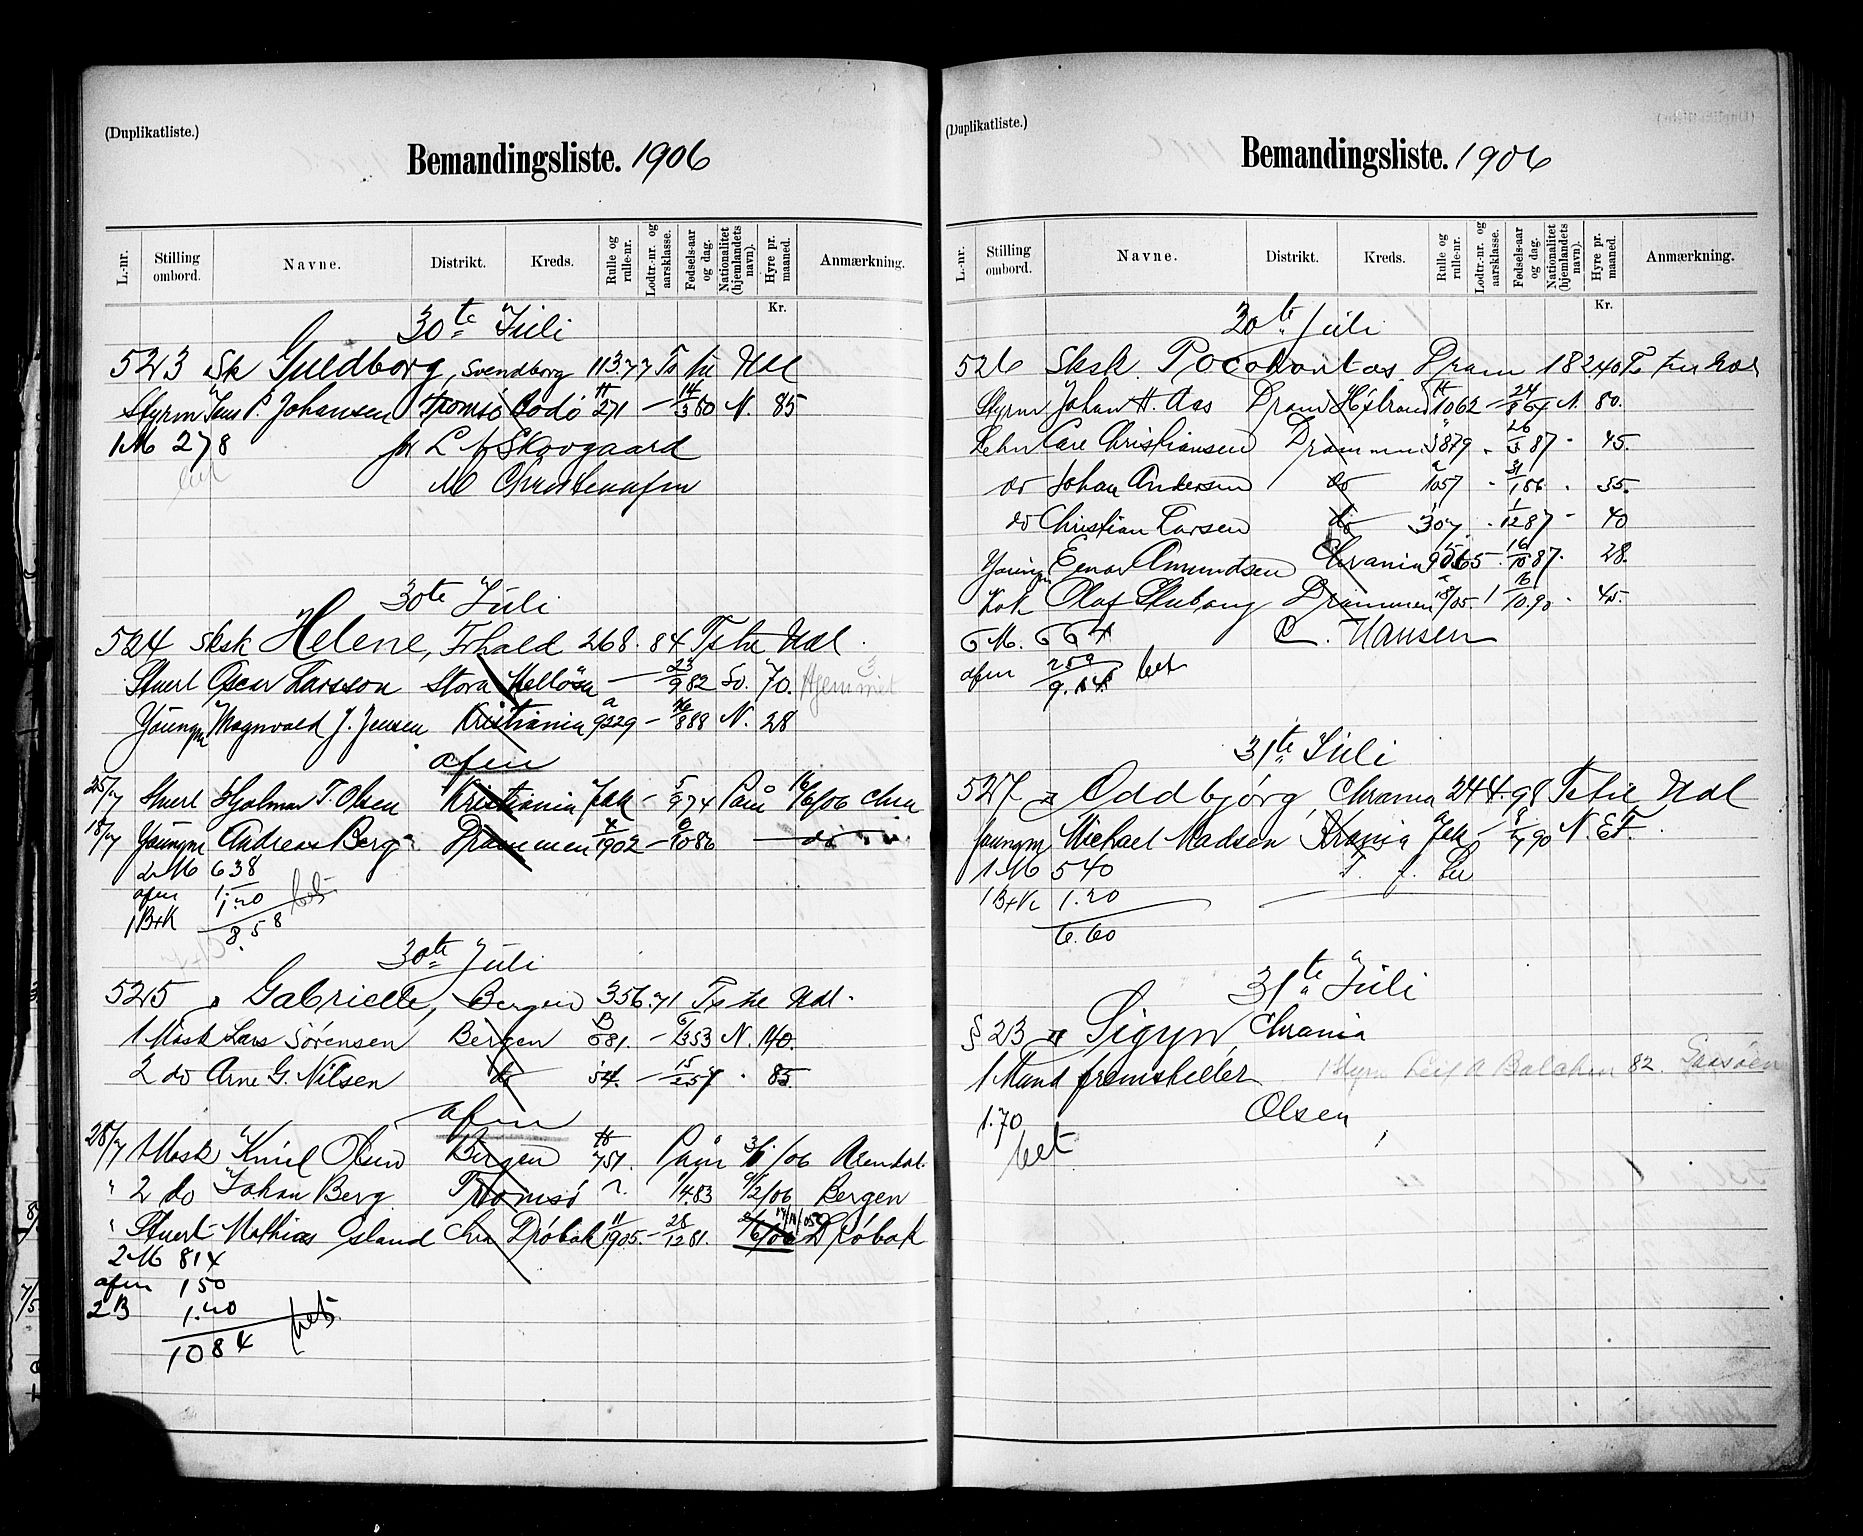 (Duplikatliste.)
Bemandingsliste. 1906
L.-nr.
Stilling ombord.
Navne.
Distrikt.
Kreds.
Rulle og rulle-nr.
Lodtr.-nr. og aarsklasse.
Fødsels-aar og dag.
Nationalitet (hjemlandets navn).
Hyre pr. maaned.
Anmærkning.
Kr.
30te Juli
523 Sk Guldborg, Svendborg 113.77 Ts tir Udl
Styrm Jens P. Johansen Tromsø Bodø 271 — 14/3 60 N. 85
1 M 278 L Skovgaard
M
30te Juli
524 Sksk Helene, Frhald 268. 84 Ts tir Udl.
Stuert Oscar Larsson Stora Mellösa — 23/9 82 Sv. 70.
Youngm Magnvald J. Jensen Kristiania 9229 — 16/8 88 N. 28
afm
25/7 Stuert Hjalmar T. Olsen Kristiania — 5/9 74 Paam 16/6/06 Chra
18/7 Youngm Andreas Berg Drammen 1902 — 6/10 86 — do
2 M 638
afm 1.
1 B+K 1.20 bet
8.58
30te Juli
525 " Gabrielle, Bergen 356.71 Ts tir Udl.
1 Mask Lars Sørensen Bergen 681. — 6/3 53 N. 140.
2 do Arne G. Nilsen do 54. — 15/2 57 " 85
afm
28/7 1 Mask Emil Olsen Bergen 751. Paam 3/1/06 Arendal.
" 2 do Johan Berg Tromsø ?. 1/4.83 9/2/06 Bergen
" Stuert Mathias Island Chra Drøbak 1905. — 28/12 81. Drøbak
2 M 814
afm 150
2 B 1.20 bet
1084
(Duplikatliste.)
Bemandingsliste. 1906
L.-nr.
Stilling ombord.
Navne.
Distrikt.
Kreds.
Rulle og rulle-nr.
Lodtr.-nr. og aarsklasse.
Fødsels-aar og dag.
Nationalitet (hjemlandets navn).
Hyre pr. maaned.
Anmærkning.
Kr.
30te Juli
526 Sksk. Pocahontas. Dram 182.40 Ts tir Udl
Styrm Johan H. Aas Dram 1062 — 24/8 64 N. 80.
Letm Care Christiansen Drammen 3879 " 26/5 87 " 45.
do Johan Andersen do 1057 " 31/1 86 " 55.
do Christian Larsen do 307 " 1/12 87 " 40
Youngm Einar Amundsen Chrania 16/10 87. 28.
Kok Olaf Skubang Drammen 18/05. 1 16/10.90 " 45.
6 M. 664 C. Hansen
afm 250 bet
9.14
31te Juli
527 " Oddbjørg, Chrania 244.98 Ts tir Udl
Youngm Michael Madsen Krania 90 N. E.F.
1 M 540
1 B+K 1.20
6.60
31te Juli
§ 23 " Sigyn, Chrania
1 Mand fremstiller
1.70 Olsen
bet